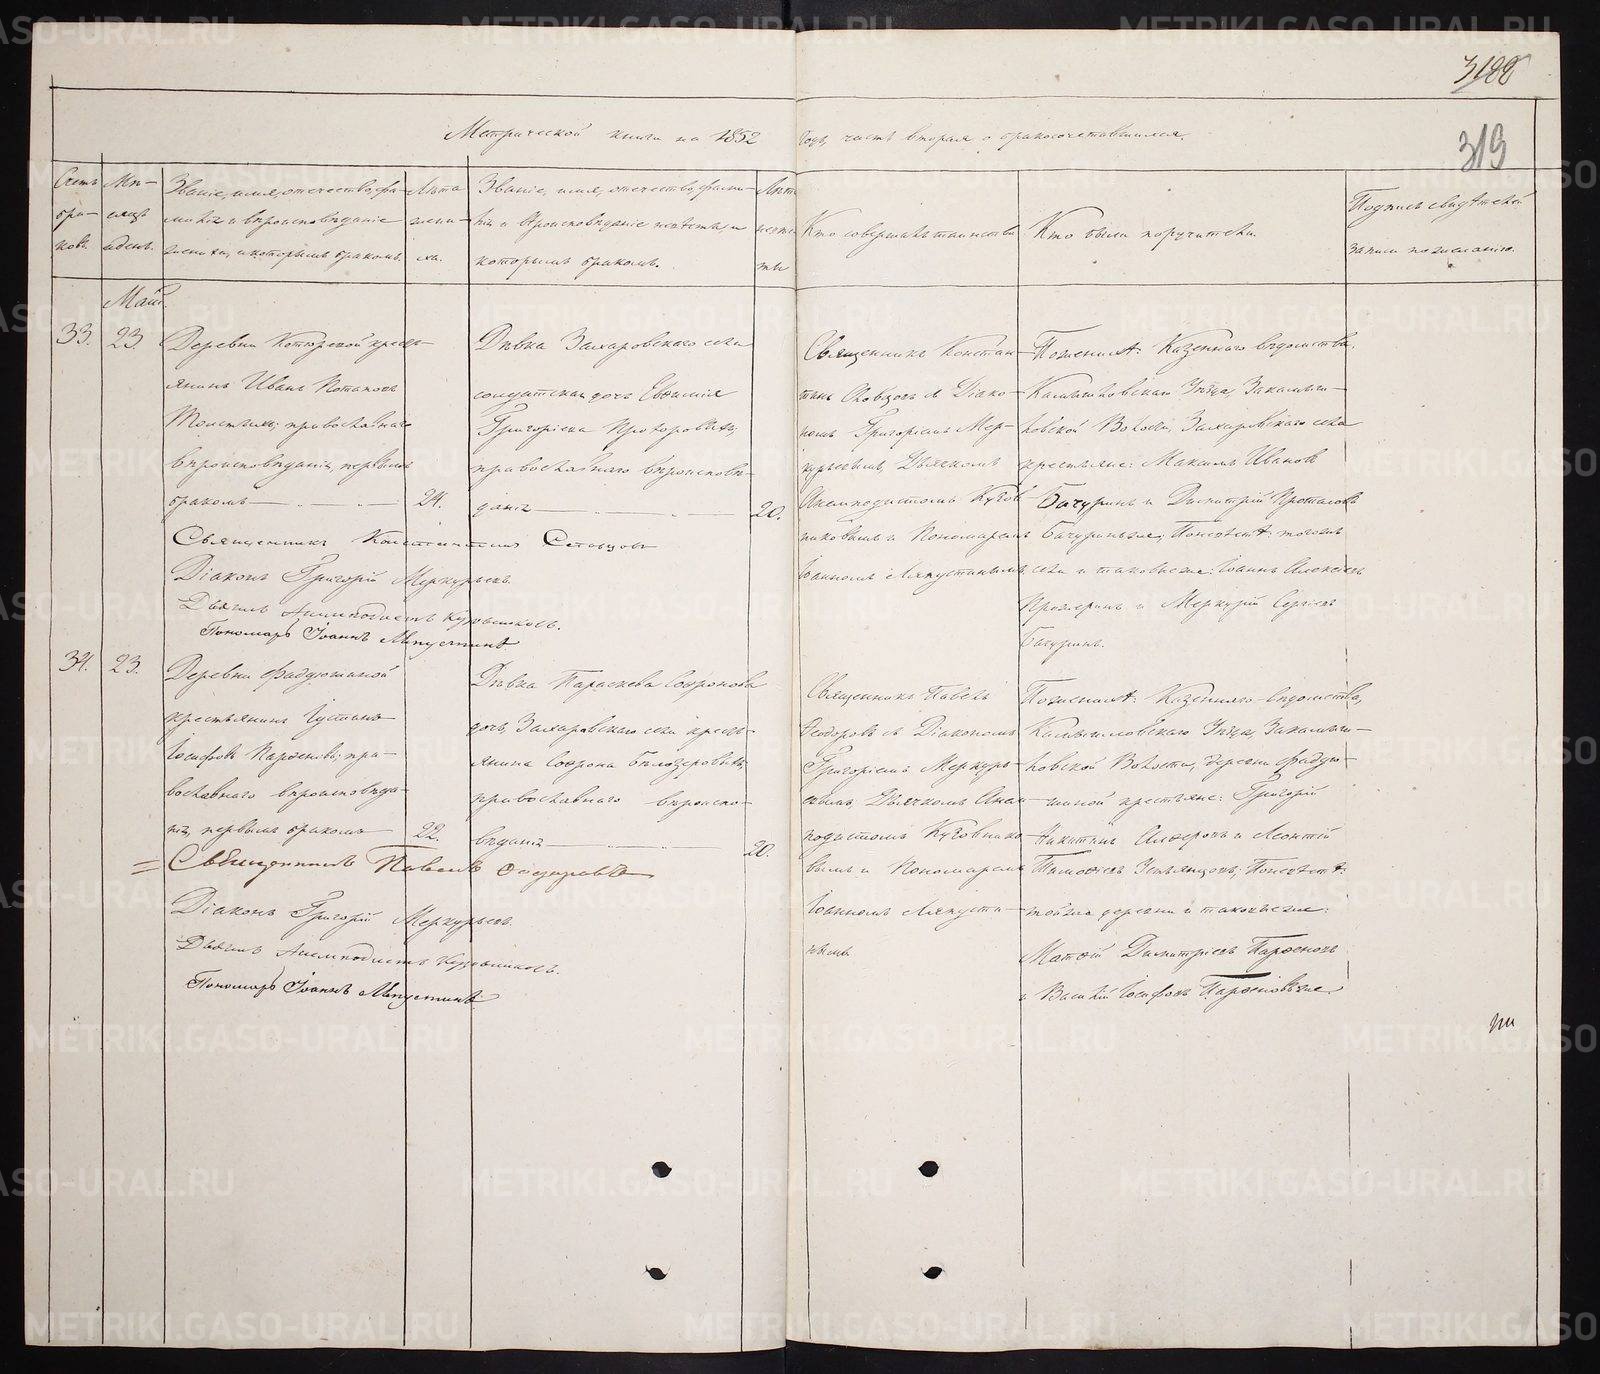 3188
319
Метрической книги на 1852 годъ, часть вторая о бракосочетавшихся.
Счетъ
бра-
ковъ.
Мѣ-
сяцъ
и день.
Званіе, имя, отчество, фа-
милія и вѣроисповѣданіе
жениха, и которымъ бракомъ.
Лѣта
жени-
ха.
Званіе, имя, отчество, фами-
лія и вѣроисповѣданіе невѣсты, и
которымъ бракомъ.
Лѣта
невѣс-
ты
Кто совершалъ таинство
Кто были поручители.
Подпись свидѣтелей
записи по желанію.
Маій.
33.
23.
Деревни крестъ-
янинъ Иванъ Потаповъ
православнаго
вѣроисповѣданія, первымъ
бракомъ
24.
Дѣвка Захаровскаго села
солдатская дочь Евфимія
Григоріева
православнаго вѣроисповѣ-
данія
20.
Священникъ Констан-
тинъ и Діако-
номъ Григоріемъ Мер-
курьевымъ, Дьячкомъ
Анемподистомъ Кудов-
никовымъ и Пономаремъ
Іоанномъ Ляпустинымъ,
По женихѣ: Казеннаго вѣдомства,
Камышловскаго Уѣзда, Закамыш-
ловской Волости, Захаровскаго села
крестьяне: Максимъ Ивановъ
Бачуринъ и Димитрій
Бачурины же; По невѣстѣ: тогожъ
села и таковые же: Іоаннъ Алексѣевъ
и Меркурій Сергіевъ
Бачуринъ.
Священникъ Константинъ
Діаконъ Григорій Меркурьевъ.
Дьячекъ Анемподистъ Кудовниковъ.
Пономарь Іоаннъ Ляпустинъ
34.
23.
Деревни Фадюшиной
крестьянинъ Іустинъ
Іосифовъ Парфеновъ; пра-
вославнаго вѣроисповѣда-
нія, первымъ бракомъ
22.
Дѣвка Параскева Софронова
дочь, Захаровскаго села кресть-
янина Софрона Бѣлозеровыхъ,
православнаго вѣроиспо-
вѣданія
20.
Священникъ Павелъ
Феодоровъ съ Діакономъ
Григоріемъ Меркурь-
евымъ, Дьячкомъ Анем-
подистомъ Кудовнико-
вымъ и Пономаремъ
Іоанномъ Ляпусти-
нымъ.
По женихѣ: Казеннаго вѣдомства,
Камышловскаго Уѣзда, Закамыш-
ловской Волости, деревни Фадю-
шиной крестьяне: Григорій
Никитинъ и Леонтій
Тимофеевъ По невѣстѣ:
той же деревни и таковые же:
Матфій Димитріевъ Парфеновъ
и Василій Іосифовъ Парфеновы же.
Священникъ Павелъ Феодоровъ
Діаконъ Григорій Меркурьевъ.
Дьячекъ Анемподистъ Кудовниковъ.
Пономарь Іоаннъ Ляпустинъ
METRIKI.GASO-URAL.RU